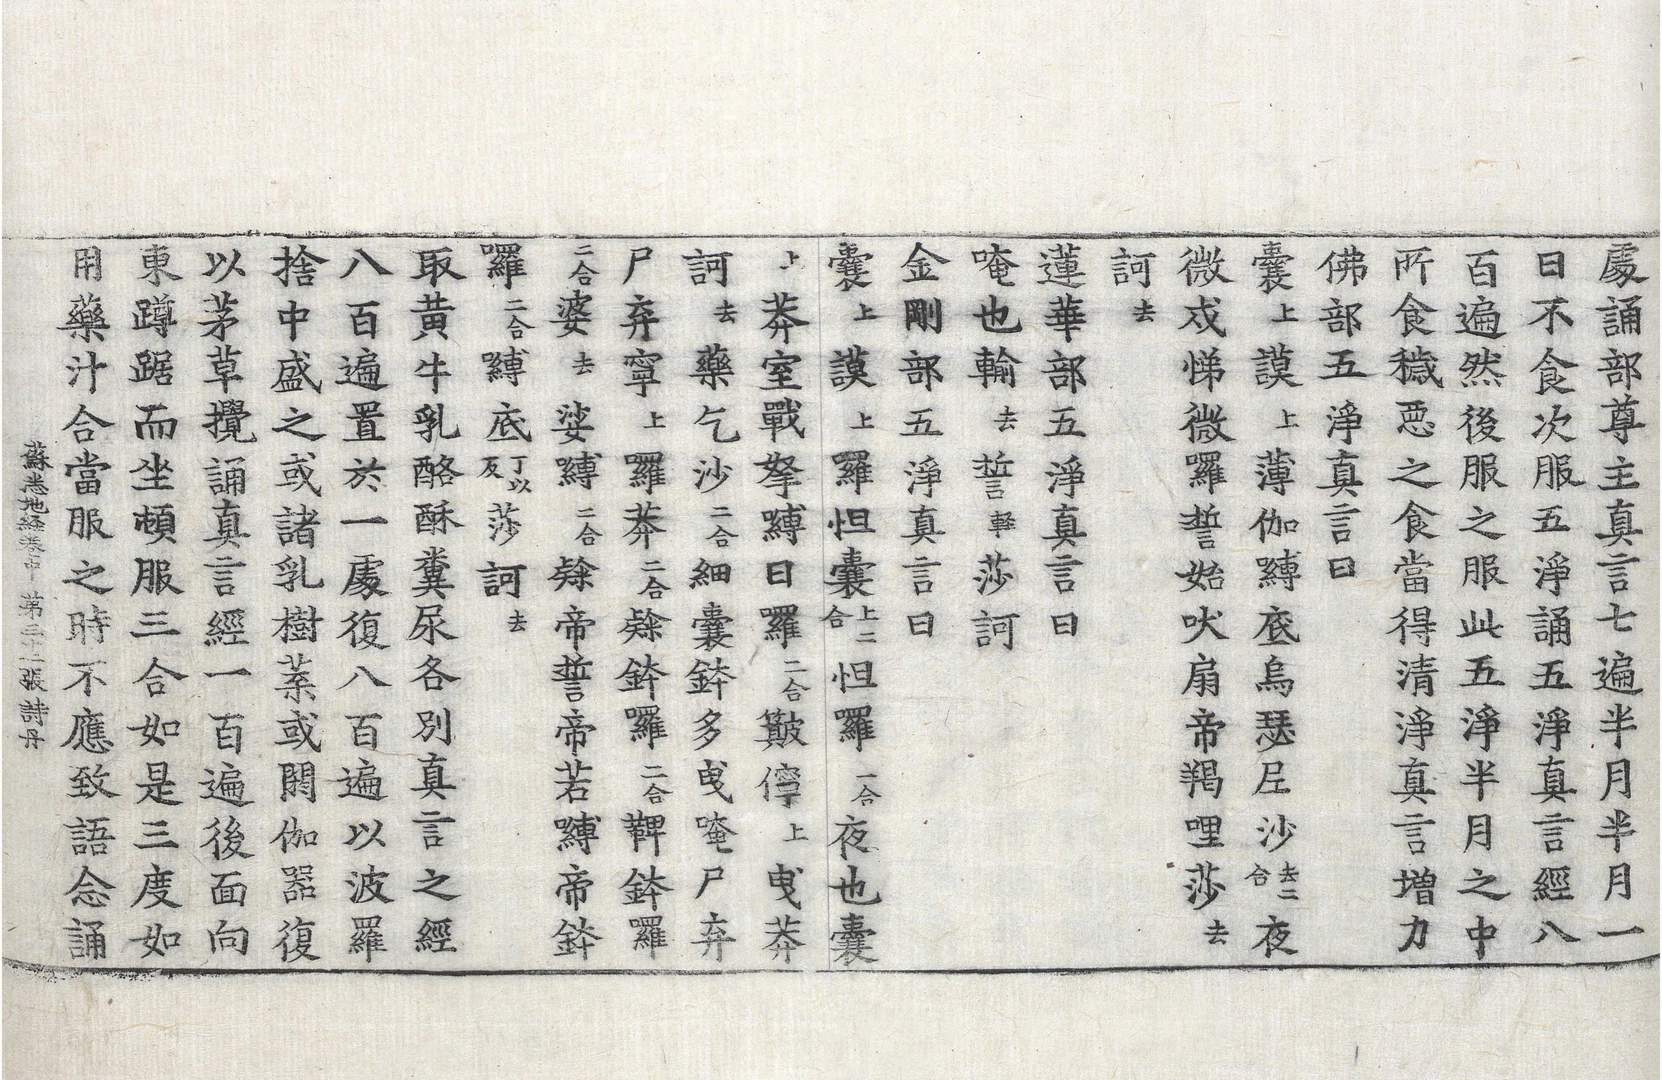 處誦部尊主真言七遍半月半月一
日不食次服五淨誦五淨真言經八
百遍然後服之服此五淨半月之中
所食穢惡之食當得清淨真言增力
佛部五淨真言曰
囊上謨上薄伽嚩底烏瑟尼沙去二合夜
微戍悌微羅誓始吠扇帝羯哩莎去
訶去
蓮華部五淨真言曰
唵也輸去誓輕莎訶
金剛部五淨真言曰
囊上謨上羅怛囊上二合怛羅一合夜也囊
上莽室戰拏嚩日羅二合簸儜上曳莽
訶去藥乞沙二合細囊鉢多曳唵尸弃
尸弃寧上羅莽二合㘑鉢羅二合鞞鉢羅
二合婆去娑嚩二合㘑帝誓帝若嚩帝鉢
囉二合嚩底丁以反莎訶去
取黃牛乳酪酥糞尿各別真言之經
八百遍置於一處復八百遍以波羅
捨中盛之或諸乳樹葉或閼伽器復
以茅草攪誦真言經一百遍後面向
東蹲踞而坐頓服三合如是三度如
用藥汁合當服之時不應致語念誦
蘇悉地經卷中 第二十二張 詩丹